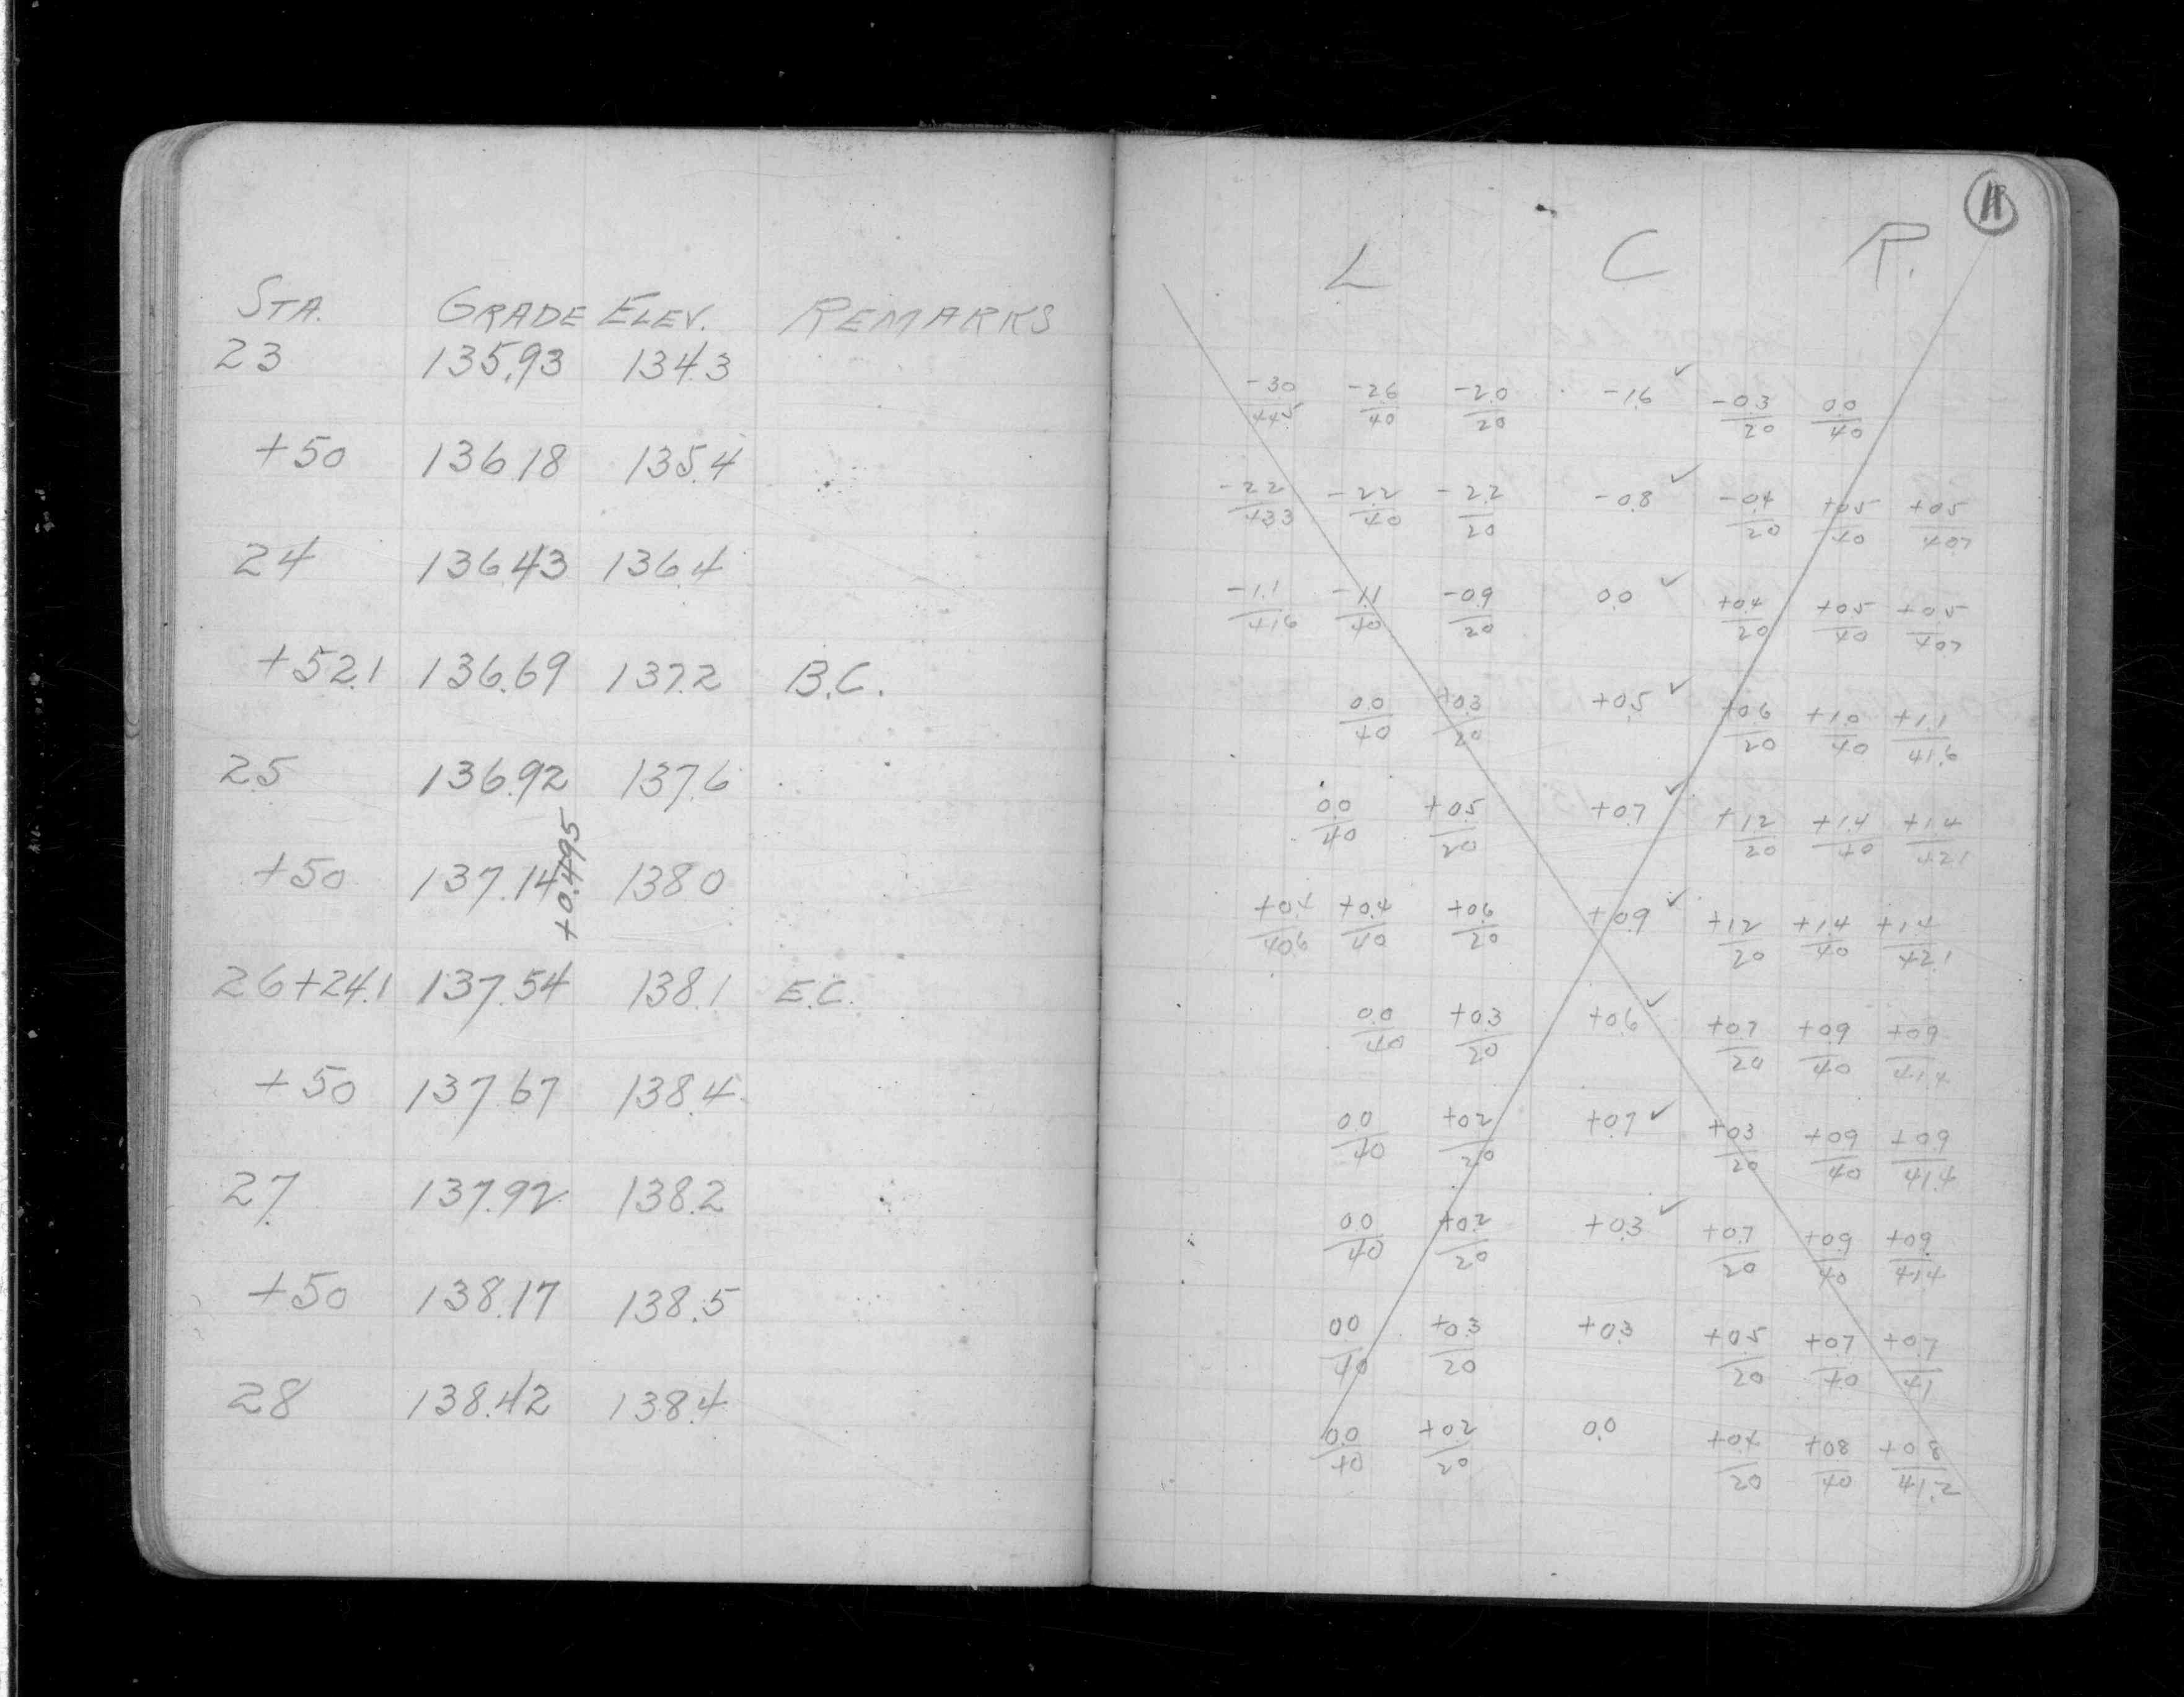 STA. GRADE ELEV. REMARKS
23 135.93 134.3
+50 136.18 135.4
24 136.43 136.4
+52.1 136.69 137.2 B.C.
25 136.92 137.6
+0.495
+50 137.14 138.0
26+24.1 137.54 138.1 E.C.
+50 137.67 138.4
27 137.92 138.2
+50 138.17 138.5
28 138.42 138.4
L C R.
-3.0 -2.6 -2.0 -1.6 ✓ -0.3 0.0
44.5 40 20 20 40
-2.2 -2.2 -2.2 -0.8 ✓ -0.4 +0.5 +0.5
43.3 40 20 20 40 40.7
-1.1 -1.1 -0.9 0.0 ✓ +0.4 +0.5 +0.5
41.6 40 20 20 40 40.7
0.0 +0.3 +0.5 ✓ +0.6 +1.0 +1.1
40 20 20 40 41.6
0.0 +0.5 +0.7 ✓ +1.2 +1.4 +1.4
40 20 20 40 42.1
+0.4 +0.4 +0.6 +0.9 ✓ +1.2 +1.4 +1.4
40.6 40 20 20 40 42.1
0.0 +0.3 +0.6 ✓ +0.7 +0.9 +0.9
40 20 20 40 41.4
0.0 +0.2 +0.7 ✓ +0.3 +0.9 +0.9
40 20 20 40 41.4
0.0 +0.2 +0.3 ✓ +0.7 +0.9 +0.9
40 20 20 40 41.4
0.0 +0.3 +0.3 +0.5 +0.7 +0.7
40 20 20 40 41
0.0 +0.2 0.0 +0.4 +0.8 +0.8
40 20 20 40 41.2